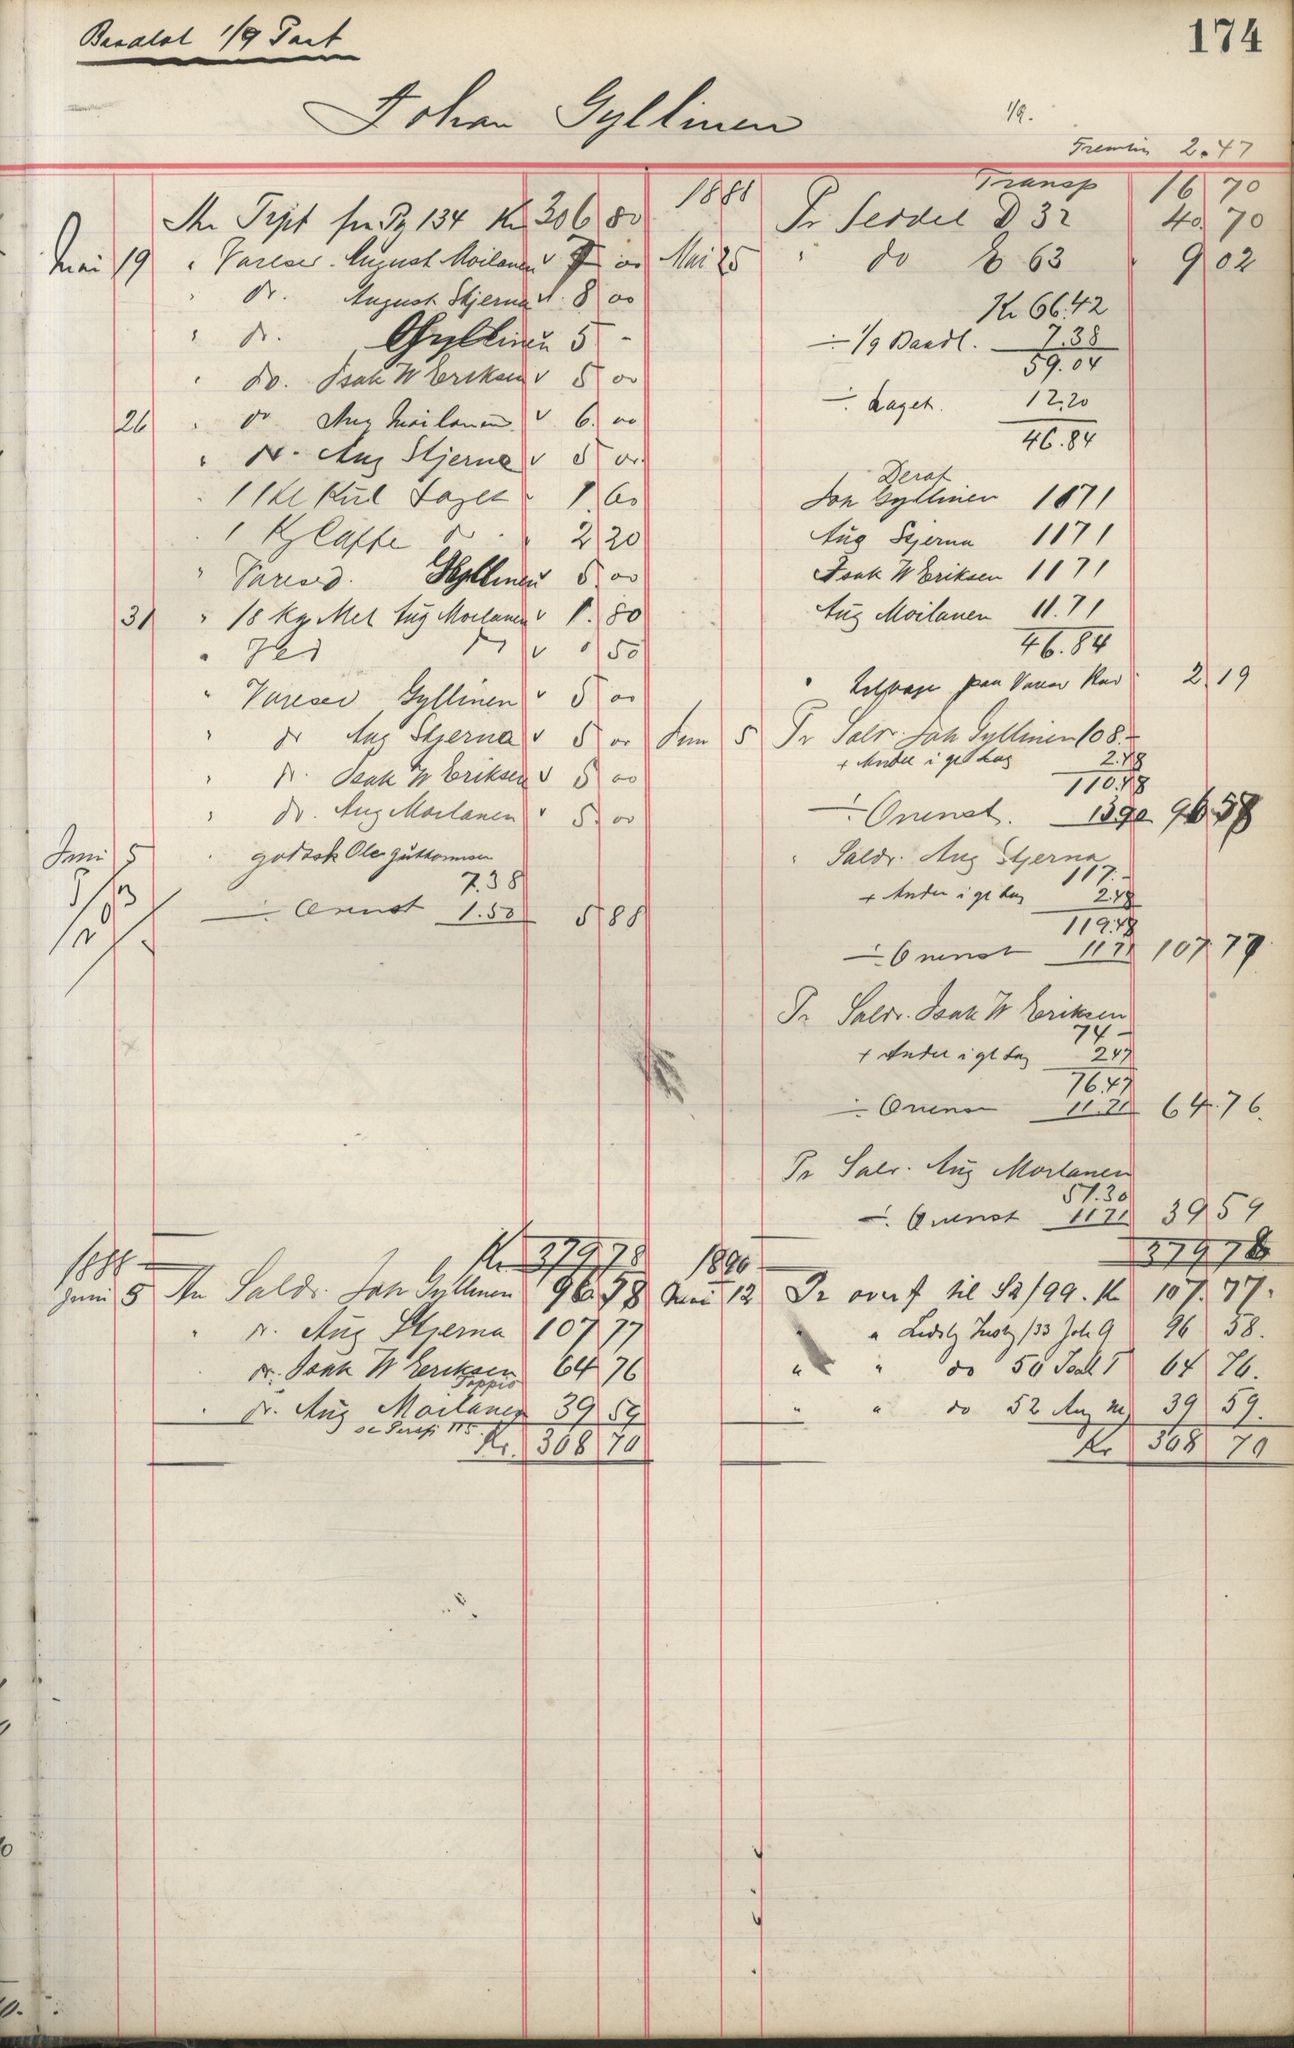 Baadlot 1/9 Part
174
Johan Gyllinen
1/9.
Fremlin 2.47
An Trpt fra Pg 134 Kr 306 80
Mai 19 " Varesed. August Moilanen v 7 00
" do. August Stjerna v 8 00
" do. Gyllinen 5 -
" do. Isak W Eriksen v 5 00
26 " do Aug Moilanen v 6.00
" do. Aug Stjerna v 5 00
" 1 Kul Laget 1.60
" 1 Kg Caffe do 2 20
" Varesed. Gyllinen v 5.00
31 " 18 Kg Mel Aug Moilanen v 1.80
" do v " 50
" Varesed Gyllinen v 5 00
" do Aug Stjerna v 5 00
" do. Isak W Eriksen v 5 00
" do. Aug Moilanen v 5.00
Juni 5 " godtsk Ole Guttormsen
7.38
÷ 1.50 5 88
Kr. 379 78
1888
Juni 5 An Saldo. Joh Gyllinen 96 58
" do. Aug Stjerna 107 77
do. Isak W Eriksen 64 76
Tappio
" do. Aug Moilanen 39 59
se Persp 115.
Kr. 308 70
1888 Transp 16 70
Pr Seddel D 32 40 70
Mai 25 " do E 63 9 02
Kr 66.42
÷ 1/9 Baadl. 7.38
59.04
÷ Laget. 12.20
46.84
Deraf
Joh Gyllinen 1171
Aug Stjerna 1171
Isak W Eriksen 1171
Aug Moilanen 11.71
46.84
" paa Varer 2.19
Juni 5 Pr Saldo. Joh Gyllinen 108.-
+ Andel i gl Lag 2.48
110.48
÷ 13.90 96 58
" Saldo. Aug Stjerna
117.-
+ Andel i gl Lag 2.48
119.48
÷ 11 71 107.77
Pr Saldo. Isak W Eriksen
74 -
+ Andel i gl Lag 2 47
76.47
÷ 11.71 64.76.
Pr Saldo. Aug Moilanen
51.30
÷ 11 71 39 59
379 78
1890
Mai 12 Pr overf til S2/99. Kr 107.77.
" " /33 Joh G 96 58.
" " do 50 Isak T 64 76.
" " do 52 Aug M 39 59.
Kr 308 70